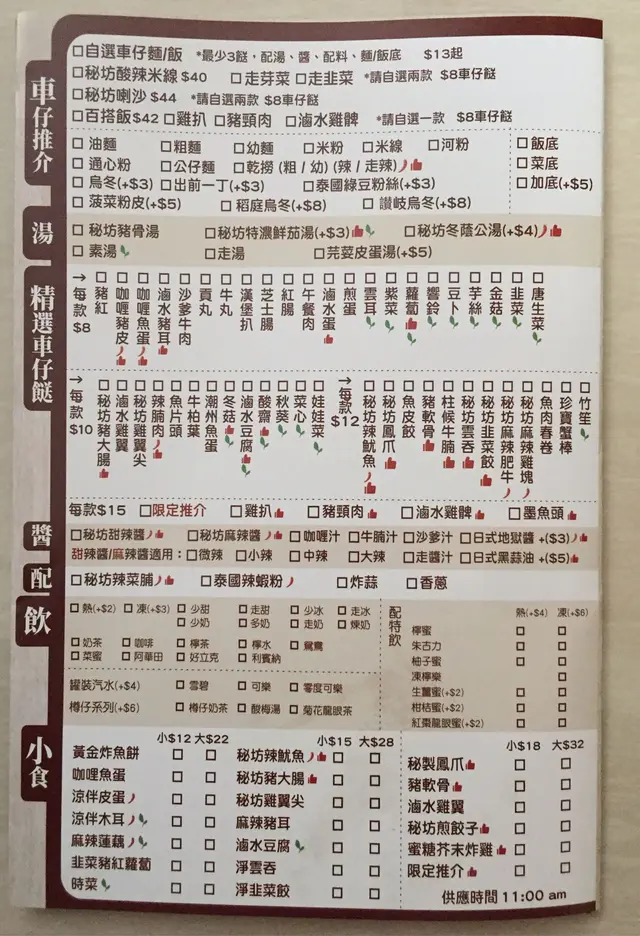 車仔推介
□自選車仔麵/飯 *最少3餸，配湯、醬、配料、麵/飯底 $13起
□秘坊酸辣米線$40 □走芽菜□走韭菜 *請自選兩款 $8車仔餸
□秘坊喇沙$44 *請自選兩款 $8車仔餸
□百搭飯$42□雞扒 □豬頸肉 □滷水雞髀 *請自選一款 $8車仔餸
□油麵 □粗麵 □幼麵 □米粉 □米線 □河粉 □飯底
□通心粉 □公仔麵 □乾撈(粗/幼)(辣/走辣) □菜底
□烏冬(+$3) □出前一丁(+$3) □泰國綠豆粉絲(+$3) □加底(+$5)
□菠菜粉皮(+$5) □稻庭烏冬(+$8) □讚岐烏冬(+$8)
湯
□秘坊豬骨湯 □秘坊特濃鮮茄湯(+$3) □秘坊冬蔭公湯(+$4)
□素湯 □走湯 □芫荽皮蛋湯(+$5)
精選車仔餸
→每款$8
□豬紅
□咖喱豬皮
□咖喱魚蛋
□滷水豬耳
□沙爹牛肉
□貢丸
□牛丸
□漢堡扒
□芝士腸
□紅腸
□午餐肉
□滷水蛋
□煎蛋
□雲耳
□紫菜
□蘿蔔
□響鈴
□豆卜
□芋絲
□金菇
□韭菜
□唐生菜
→每款$10
□秘坊豬大腸
□滷水雞翼
□秘坊雞翼尖
□辣腩肉
□魚片頭
□牛柏葉
□潮州魚蛋
□冬菇
□滷水豆腐
□酸齋
□秋葵
□菜心
□娃娃菜
→每款$12
□秘坊辣魷魚
□秘坊鳳爪
□魚皮餃
□豬軟骨
□柱候牛腩
□秘坊雲吞
□秘坊韭菜餃
□秘坊麻辣肥牛
□秘坊麻辣雞塊
□魚肉春卷
□珍寶蟹棒
□竹笙
每款$15 □限定推介 □雞扒 □豬頸肉 □滷水雞髀 □墨魚頭
醬
□秘坊甜辣醬 □秘坊麻辣醬 □咖喱汁 □牛腩汁 □沙爹汁 □日式地獄醬 (+$3)
甜辣醬/麻辣醬適用：□微辣 □小辣 □中辣 □大辣 □走醬汁 □日式黑蒜油 (+$5)
配
□秘坊辣菜脯 □泰國辣蝦粉 □炸蒜 □香蔥
飲
□熱(+$2) □凍(+$3) □少甜 □走甜 □少冰 □走冰
□少奶 □多奶 □走奶 □煉奶
□奶茶 □咖啡 □檸茶 □檸水 □鴛鴦
□菜蜜 □阿華田 □好立克 □利賓納
罐裝汽水(+$4) □雪碧 □可樂 □零度可樂
樽仔系列(+$6) □樽仔奶茶 □酸梅湯 □菊花龍眼茶
配特飲
熱(+$4) 凍(+$6)
檸蜜 □ □
朱古力 □ □
柚子蜜 □ □
凍檸樂 □
生薑蜜(+$2) □ □
柑桔蜜(+$2) □ □
紅棗龍眼蜜(+$2) □ □
小食
小$12 大$22
黃金炸魚餅 □ □
咖哩魚蛋 □ □
涼伴皮蛋 □ □
涼伴木耳 □ □
麻辣蓮藕 □ □
韭菜豬紅蘿蔔 □ □
時菜 □ □
小$15 大$28
秘坊辣魷魚 □ □
秘坊豬大腸 □ □
秘坊雞翼尖 □ □
麻辣豬耳 □ □
滷水豆腐 □ □
淨雲吞 □ □
淨韭菜餃 □ □
小$18 大$32
秘製鳳爪 □ □
豬軟骨 □ □
滷水雞翼 □ □
秘坊煎餃子 □ □
蜜糖芥末炸雞 □ □
限定推介 □ □
供應時間 11:00 am